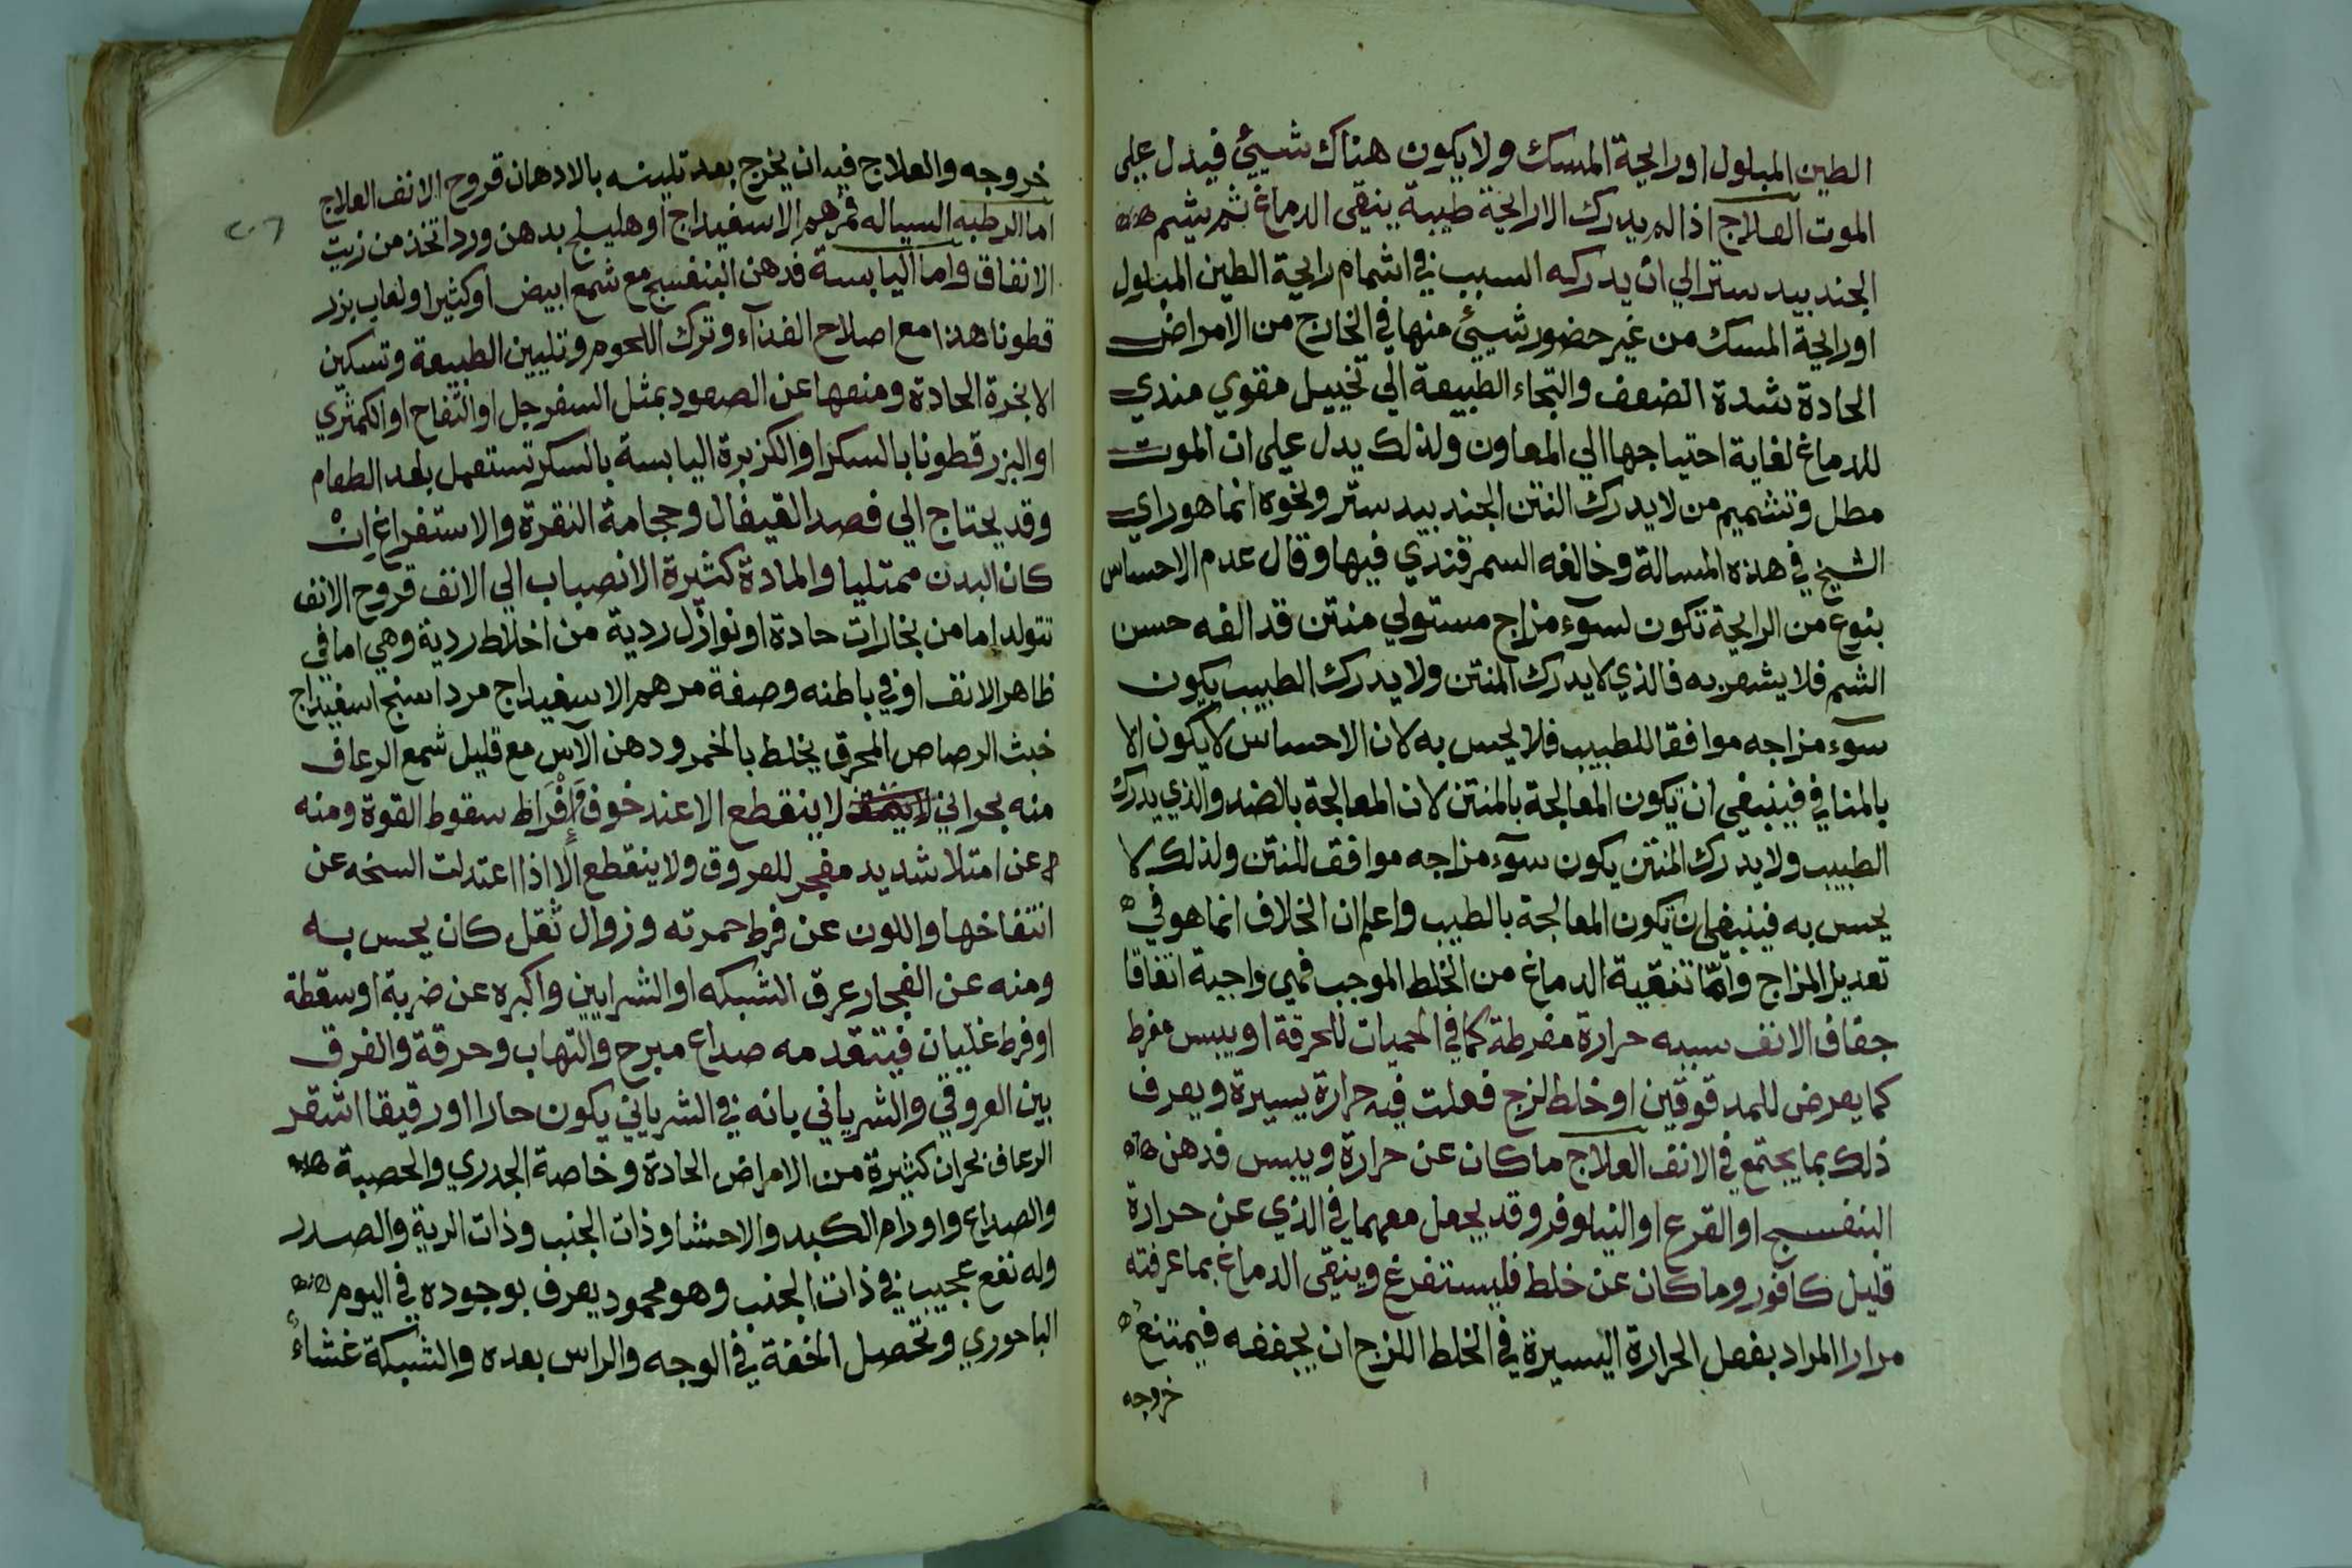 الطين المبلول او رايحة المسك ولا يكون هناك شيئ فيدل علي
الموت العلاج اذا لم يدرك الا رايحة طيبة ينقي الدماغ ثم يشم
الجند بيدستر الي ان يدركه السبب في اشمام رايحة الطين المبلول
او رايحة المسك من غير حضور شيئ منها في الخارج من الامراض
الحادة شدة الضعف والتجاء الطبيعة الي تخييل مقوي مندي
للدماغ لغاية احتياجها الي المعاون ولذلك يدل علي ان الموت
مطل وتشميم من لا يدرك النتن الجند بيدستر ونحوه انما هو راي
الشيخ في هذه المسالة وخالفه السمرقندي فيها وقال عدم الاحساس
بنوع من الرايحة تكون لسوء مزاج مستولي منتن قد الفه حسن
الشم فلا يشعر به فالذي لا يدرك المنتن ولا يدرك الطبيب يكون
سوء مزاجه موافقا للطبيب فلا يحس به لان الاحساس لا يكون الا
بالمنافي فينبغي ان تكون المعالجة بالمنتن لان المعالجة بالضد والذي يدرك
الطبيب ولا يدرك المنتن يكون سوء مزاجه موافق للنتن ولذلك لا
يحس به فينبغي ان تكون المعالجة بالطيب واعلم ان الخلاف انما هو في
تعديل المزاج واما تنقية الدماغ من الخلط الموجب فهي واجبة اتفاقا
جفاف الانف سببه حرارة مفرطة كما في الحميات المحرقة او يبس مفرط
كما يعرض للمدقوقين او خلط لزج فعلت فيه حرارة يسيرة ويعرف
ذلك بما يجتمع في الانف العلاج ما كان عن حرارة ويبس فدهن
البنفسج او القرع او النيلوفر وقد يجعل معهما في الذي عن حرارة
قليل كافور وما كان عن خلط فليستفرغ وينقي الدماغ بما عرفته
مرارا المراد بفعل الحرارة اليسيرة في الخلط اللزج ان يجففه فيمتنع
خروجه
خروجه والعلاج فيه ان يخرج بعد تليينه بالادهان قروح الانف العلاج
اما الرطبه السياله فمرهم الاسفيداج او هليلج بدهن ورد اتخذ من زيت
الانفاق واما اليابسة فدهن البنفسج مع شمع ابيض او كثيرا ولعاب بزر
قطونا هذا مع اصلاح الغذآء وترك اللحوم وتليين الطبيعة وتسكين
الابخرة الحادة ومنعها عن الصعود بمثل السفرجل او التفاح او الكمثري
او البزر قطونا بالسكر او الكزبرة اليابسة بالسكر تستعمل بعد الطعام
وقد يحتاج الي فصد القيفال وحجامة النقرة والاستفراغ ان
كان البدن ممتليا والمادة كثيرة الانصباب الي الانف قروح الانف
تتولد اما من بخارات حادة او نوازل ردية من اخلاط ردية وهي اما في
ظاهر الانف او في باطنه وصفة مرهم الاسفيداج مرداسنج اسفيداج
خبث الرصاص المحرق يخلط بالخمر ودهن الآس مع قليل شمع الرعاف
منه بحراني لا ينقطع الا عند خوف افراط سقوط القوة ومنه
عن امتلا شديد مفجر للعروق ولا ينقطع الا اذا اعتدلت السخنه عن
انتفاخها واللون عن فرط حمرته وزوال ثقل كان يحس به
ومنه عن انفجار عرق الشبكه او الشرايين واكبره عن ضربة او سقطة
او فرط غليان فيتقدمه صداع مبرح والتهاب وحرقة والفرق
بين العروقي والشرياني بانه في الشرياني يكون حارا او رقيقا اشقر
الرعاف بحران كثيرة من الامراض الحادة وخاصة الجدري والحصبة
والصداع واورام الكبد والاحشا وذات الجنب وذات الرية والصدر
وله نفع عجيب في ذات الجنب وهو محمود يعرف بوجوده في اليوم
الباحوري وتحصل الخفة في الوجه والراس بعده والشبكة غشاء